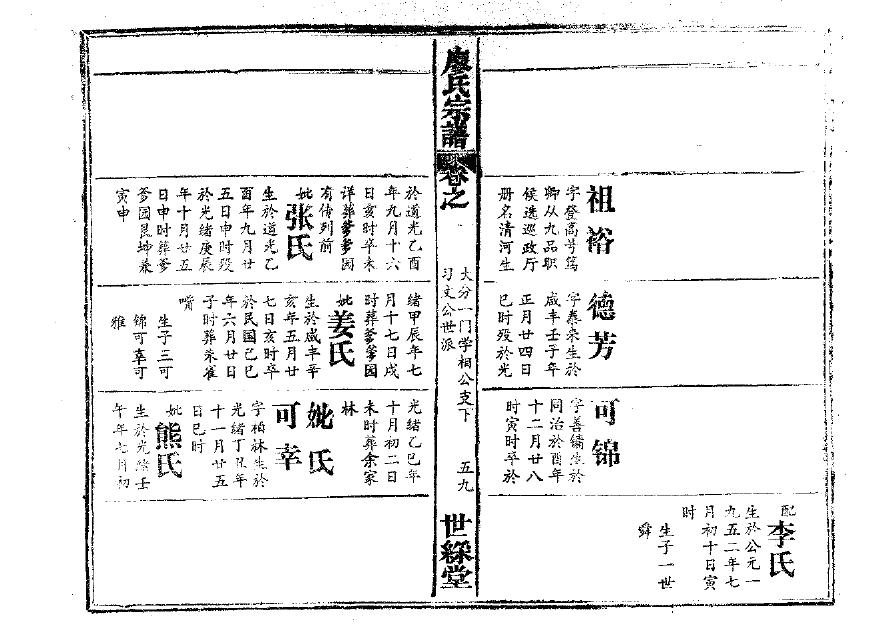 配
李氏
生於公元一
九五二年七
月初十日寅
时
生子一世
舜
祖裕
字登高号笃
卿从九品职
侯选巡政厅
册名清河生
德芳
字泰来生於
咸丰壬子年
正月廿四日
巳时殁於光
可锦
字善镛生於
同治癸酉年
十二月廿八
时寅时卒於
廖氏宗谱
卷之
大分一门学相公支下
习文公世派
五九
世綵堂
於道光乙酉
年九月十六
日亥时卒未
详葬爹爹园
有传列前
妣
张氏
生於道光乙
酉年九月廿
五日申时殁
於光绪庚辰
年十月廿五
日申时葬爹
爹园艮坤兼
寅申
绪甲辰年七
月十七日戌
时葬爹爹园
妣
姜氏
生於咸丰辛
亥年五月廿
七日亥时卒
於民国己巳
年六月廿日
子时葬朱雀
嘴
生子三可
锦可幸可
雅
光绪乙巳年
十月初二日
未时葬余家
林
妣氏
可幸
字柏林生於
光绪丁丑年
十一月廿五
日巳时
妣
熊氏
生於光绪壬
午年七月初